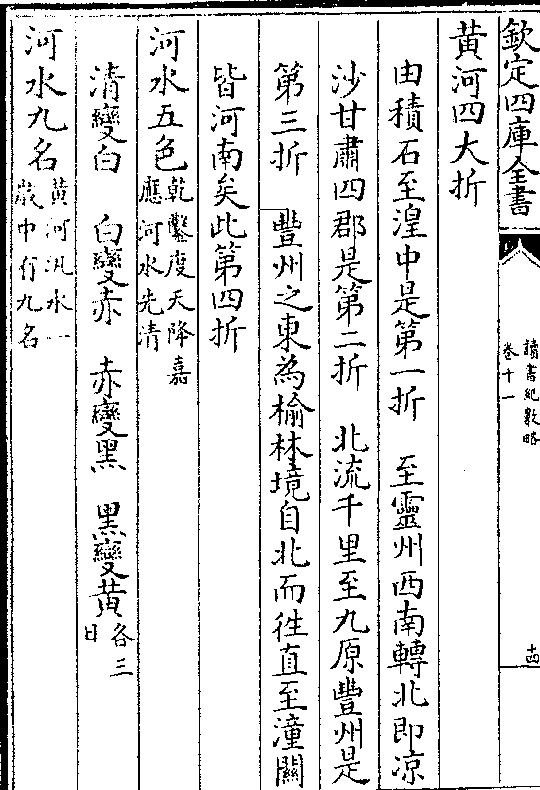 欽定四庫全書
讀書紀數略
卷十一
十四
黃河四大折
由積石至湟中是第一折　至靈州西南轉北即凉
沙甘肅四郡是第二折　北流千里至九原豐州是
第三折　豐州之東為榆林境自北而徃直至潼關
皆河南矣此第四折
河水五色
乾鑿度天降嘉
應河水先清
清變白　白變赤　赤變黑　黑變黃
各三
日
河水九名
黃河汎水一
嵗中有九名